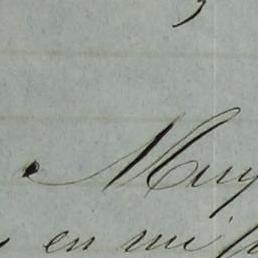 Muy
en mi